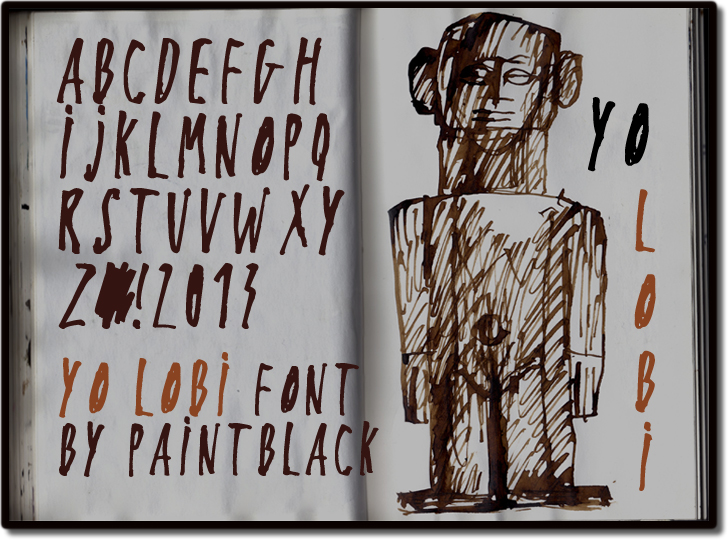 ABCDEFGH
iJKLMNOPQ
RSTUVWXY
Z!2013
YO LOBi FONT
BY PAiNTBLACK
YO
L
O
B
i